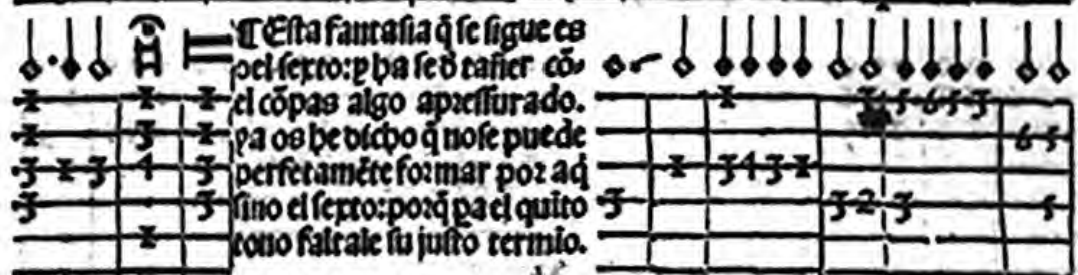 ¶Esta fantasia q̃ se sigue es
del sexto: y ha se d̃ tañer cõ-
el cõpas algo apressurado.
ya os he dicho q̃ no se puede
perfetamẽte formar por aq̃
sino el sexto: porq̃ pa el quĩto
tono faltale su justo termio.